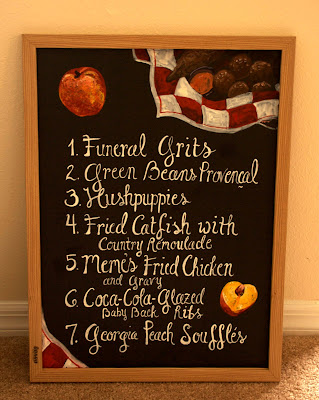 1. Funeral Grits
2. Green Beans Provençal
3. Hushpuppies
4. Fried Catfish with
Country Remoulade
5. Meme's Fried Chicken
and Gravy
6. Coca-Cola-Glazed
Baby Back Ribs
7. Georgia Peach Soufflés